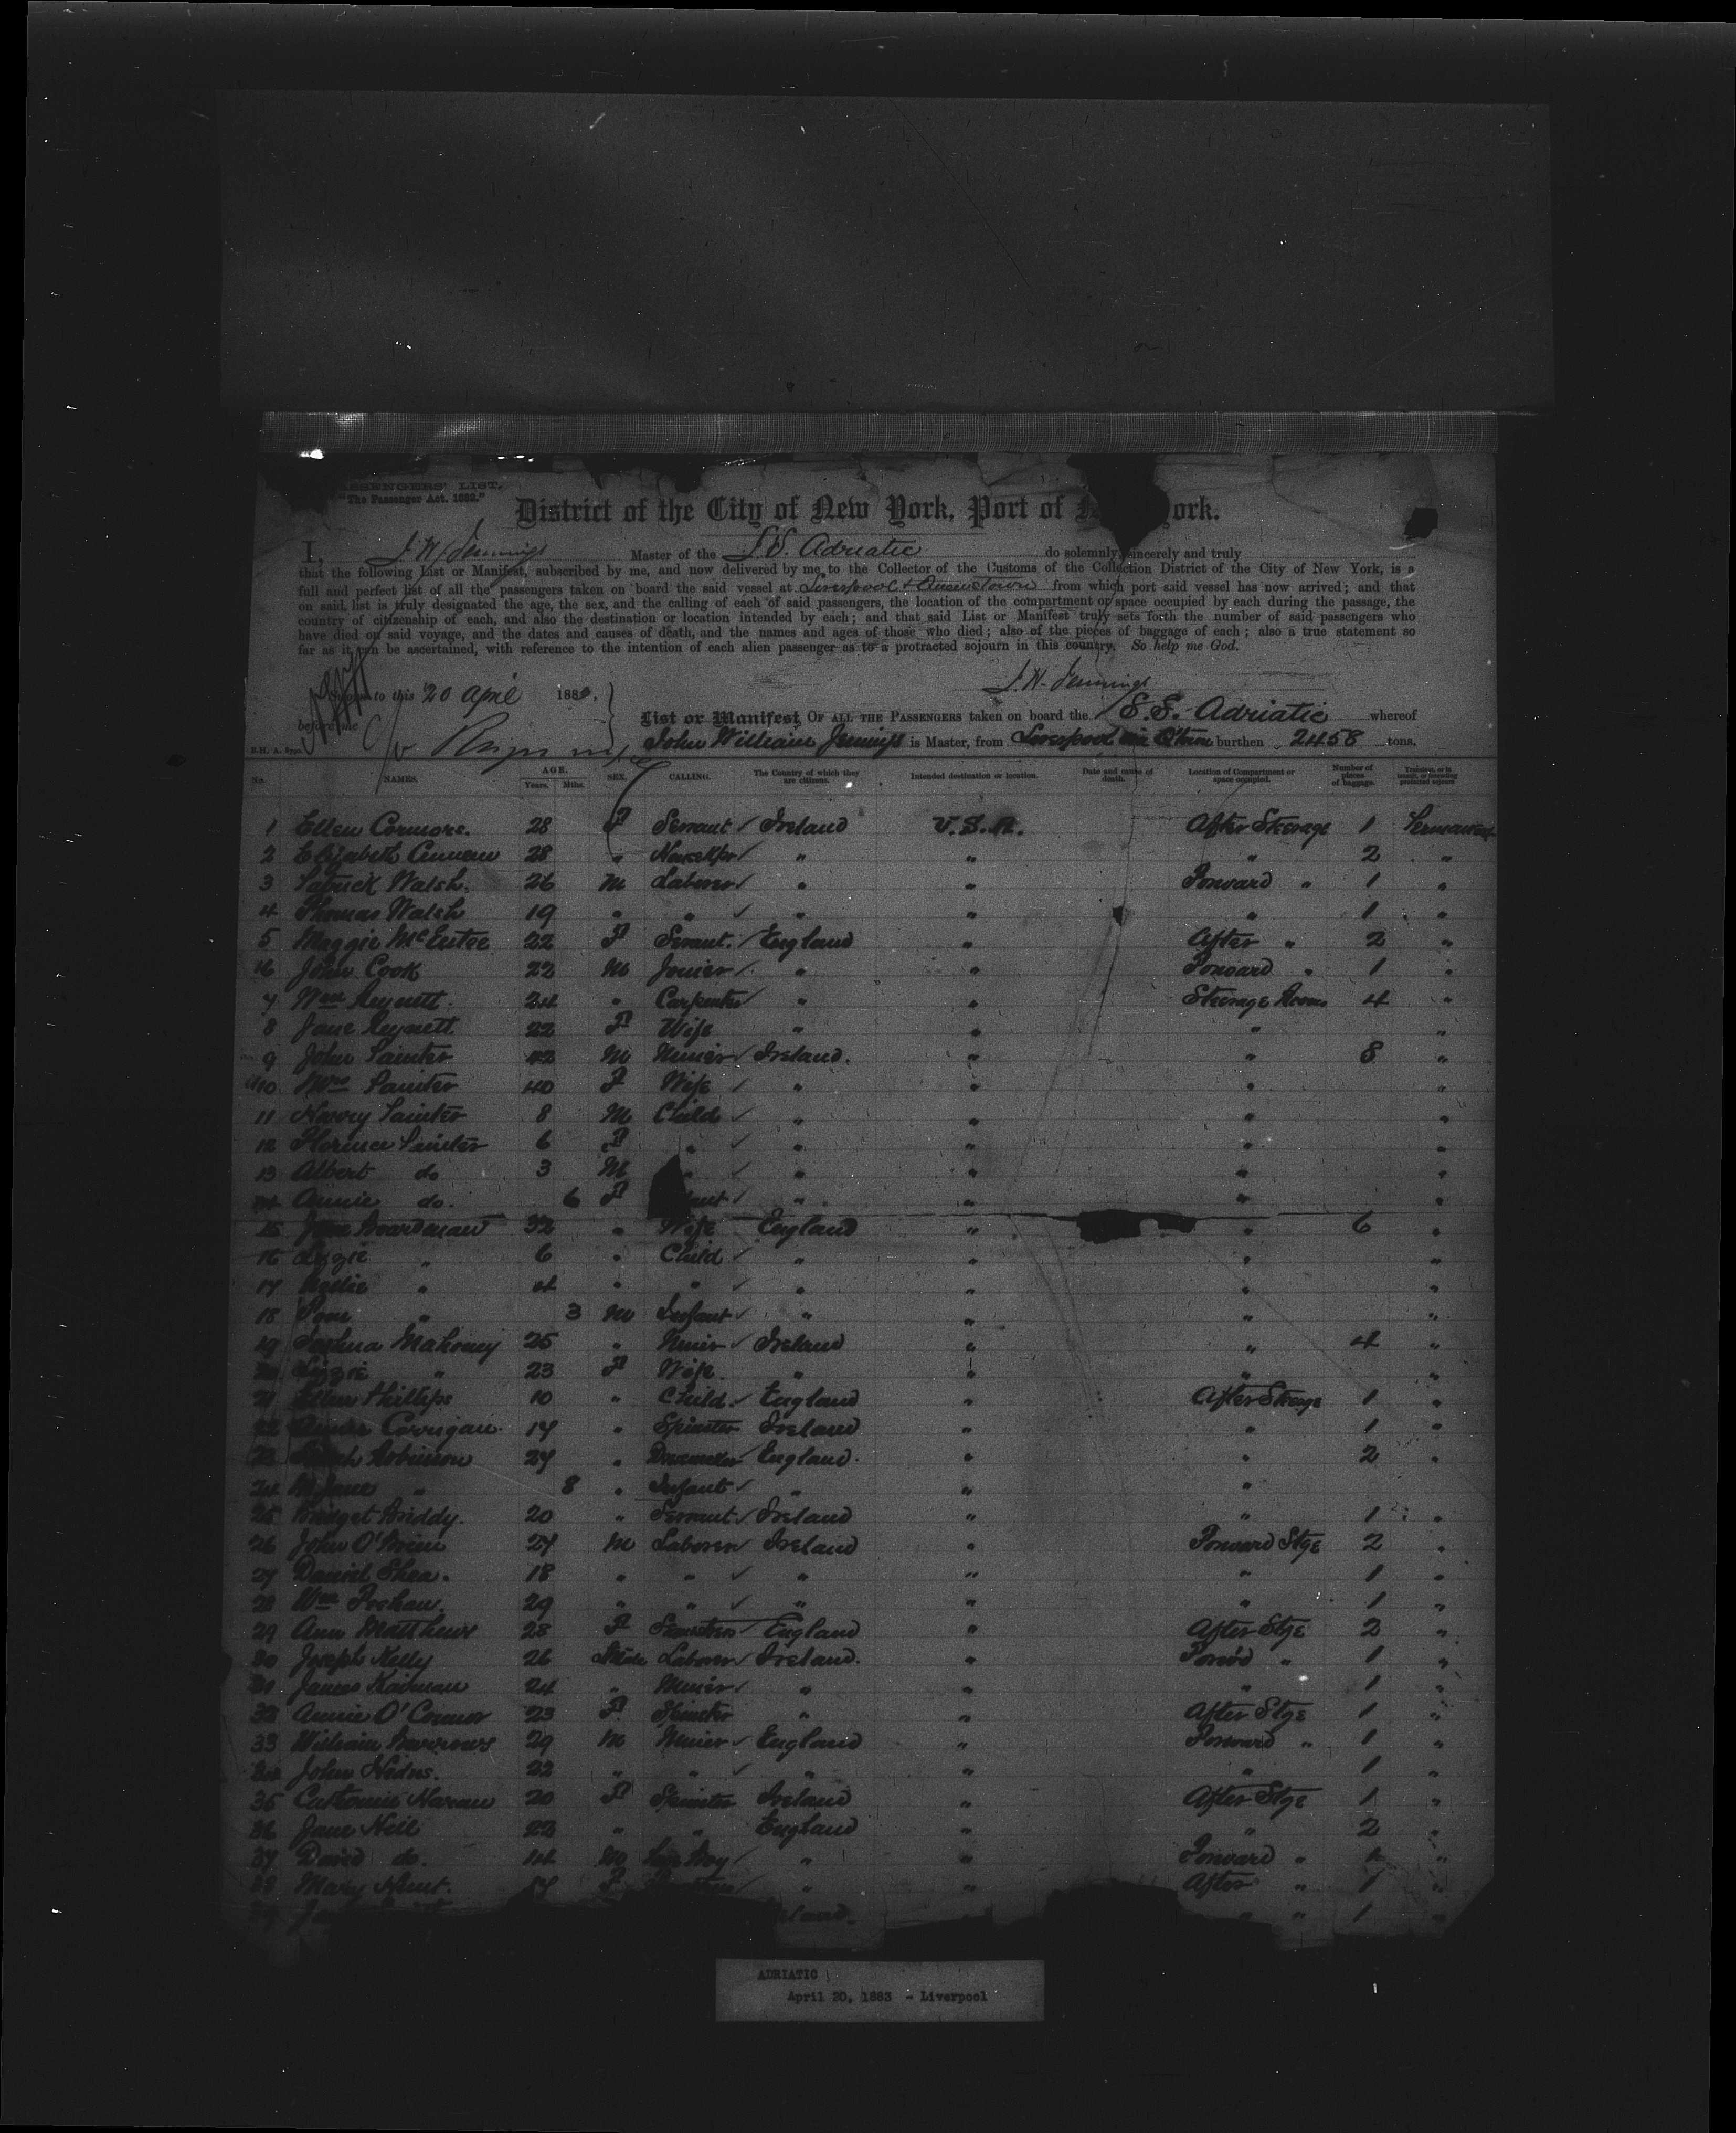 PASSENGERS' LIST.
"The Passenger Act. 1882."
District of the City of New York, Port of ork.
I, J. W. Jennings Master of the S.S. Adriatic do solemnly, sincerely and truly
that the following List or Manifest, subscribed by me, and now delivered by me to the Collector of the Customs of the Collection District of the City of New York, is a
full and perfect list of all the passengers taken on board the said vessel at Liverpool & Queenstown from which port said vessel has now arrived; and that
on said list is truly designated the age, the sex, and the calling of each of said passengers, the location of the compartment or space occupied by each during the passage, the
country of citizenship of each, and also the destination or location intended by each; and that said List or Manifest truly sets forth the number of said passengers who
have died on said voyage, and the dates and causes of death, and the names and ages of those who died; also of the pieces of baggage of each; also a true statement so
far as it can be ascertained, with reference to the intention of each alien passenger as to a protracted sojourn in this country. So help me God.
J. W. Jennings
Sworn to this 20 April 188
before me
List or Manifest, OF ALL THE PASSENGERS taken on board the S.S. Adriatic whereof
John William Jennings is Master, from Liverpool via Q'town burthen 2458 tons.
No. NAMES. AGE. Years. Mths. SEX. CALLING. The Country of which they are citizens. Intended destination or location. Date and cause of death. Location of Compartment or space occupied. Number of pieces of baggage. Transient, or in transit, or intending protracted sojourn
1 Ellen Connors. 28 F Servant Ireland U.S.A. After Steerage 1 Permanent
2 Elizabeth 28 " Housekpr " " " 2 "
3 Patrick Walsh. 26 M Laborer " " Forward " 1 "
4 Thomas Walsh 19 " " " " " 1 "
5 Maggie McEntee 22 F Servant. England " After " 2 "
6 John Cook 22 M Joiner " " Forward " 1 "
7 Wm 24 " Carpenter " " Steerage Rooms 4 "
8 Jane 22 F Wife " " " "
9 John Painter 42 M Miner Ireland. " " 8 "
10 Mrs Painter 40 F Wife " " " "
11 Harry Painter 8 M Child " " " "
12 Florence Painter 6 F " " " " "
13 Albert do 3 M " " " " "
14 Annie do. 6 F fant " " " "
15 Jane Boardman 32 " Wife England " " 6 "
16 Lizzie " 6 " Child " " " "
17 Nellie " 4 " " " " " "
18 Tom " 3 M Infant " " " "
19 Joshua Mahoney 25 " Miner Ireland " " 4 "
20 Lizzie " 23 F Wife. " " " "
21 Ellen Phillips 10 " Child. England " After Steerge 1 "
22 Corrigan. 17 " Spinster Ireland " " 1 "
23 Sarah Robinson 27 " Dressmaker England. " " 2 "
24 M. Jane " 8 " Infant " " "
25 Bridget Briddy. 20 " Servant Ireland " " 1 "
26 John O'Brien 27 M Laborer Ireland " Forward Stge 2 "
27 Daniel Shea. 18 " " " " " 1 "
28 Wm 29 " " " " " 1 "
29 Ann Matthews 28 F England " After Stge 2 "
30 Joseph Kelly 26 Male Laborer Ireland. " Forw'd " 1 "
31 James 24 " Miner " " " 1 "
32 Annie O'Connor 23 F. Spinster " " After Stge 1 "
33 William Burrows 29 M Miner England " Forward " 1 "
34 John 22 " " " " " 1 "
35 Catherine 20 F Spinster Ireland " After Stge 1 "
36 Jane Neil 22 " " England " " 2 "
37 David do. 14 M Boy " " Forward " "
38 Mary Hunt. 17 F " " After " 1 "
land. " " 1 "
ADRIATIC
April 20, 1883 - Liverpool